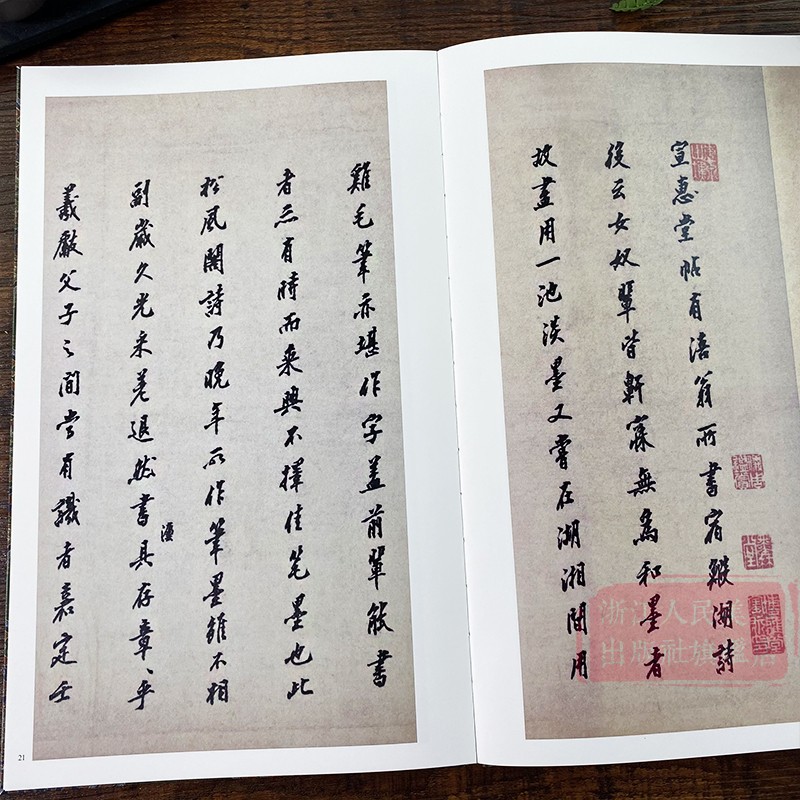 宣惠堂帖有涪翁所書宿鰕湖詩
後云女奴輩皆軒寐無為和墨者
故盡用一池淡墨又嘗在湖湘間用
雞毛筆亦堪作字蓋前輩能書
者亦有時而乘興不擇佳笔墨也此
松風閣詩乃晚年所作筆墨雖不相
副歲久光采差退然書法具存章々乎
羲獻父子之間當有識者嘉定壬
21
浙江人民美
出版社旗舰店